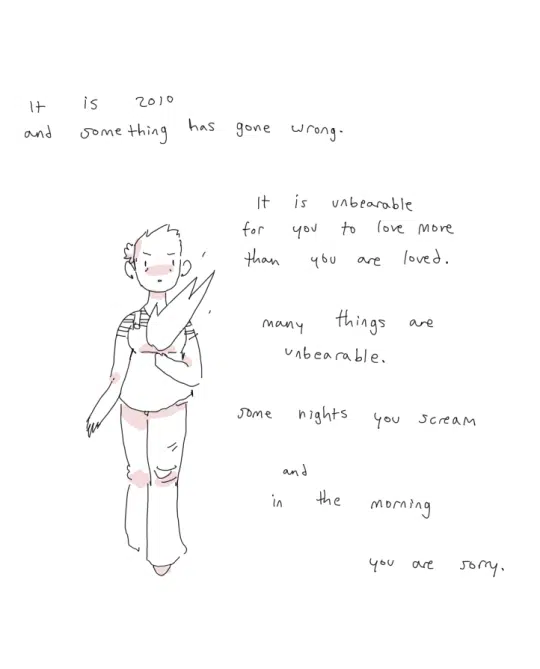 It is 2010
and something has gone wrong.
It is unbearable
for you to love more
than you are loved.
many things are
unbearable.
some nights you scream
and
in the morning
you are sorry.